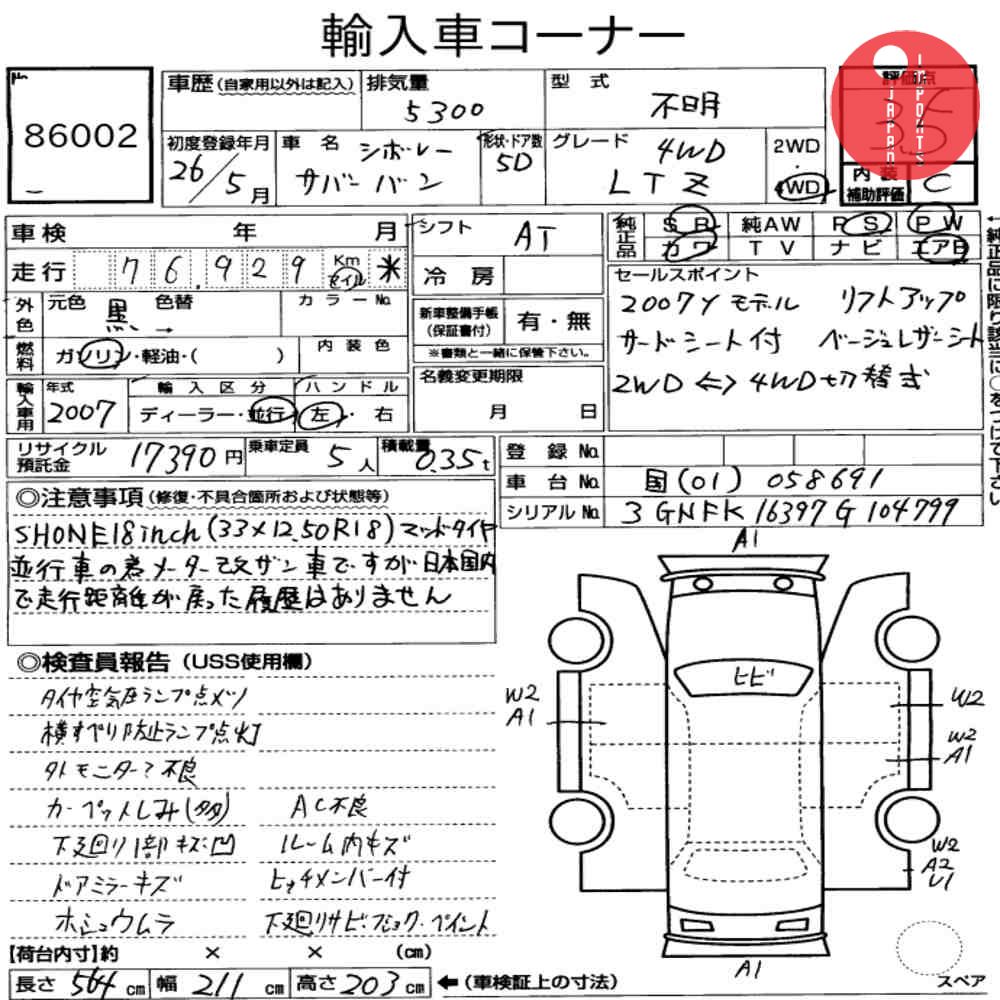 輸入車コーナー
No
86002
車歴 (自家用以外は記入)
排気量
5300
型式
不明
評価点
3.5
JAPAN IMPORTS
初度登録年月
26/5月
車名
シボレー
サバーバン
形状・ドア数
5D
グレード
4WD
LTZ
2WD
・
4WD
内装
補助評価
C
車検 年 月
走行 76,929 Km マイル ※
シフト
AT
冷房
純正品
SR 純AW PS PW
カワ TV ナビ エアB
←純正品に限り該当に○をつけて下さい
外色
元色 黒 → 色替
カラーNo.
燃料
ガソリン・軽油・( )
内装色
新車整備手帳
(保証書付)
有・無
※書類と一緒に保管下さい。
セールスポイント
2007yモデル リフトアップ
サードシート付 ベージュレザーシート
2WD⇔4WD切替式
輸入車用
年式
2007
輸入区分
ディーラー・並行
ハンドル
左・右
名義変更期限
月 日
リサイクル
預託金
17390円
乗車定員
5人
積載量
0.35t
登録No.
車台No.
国(01)058691
シリアルNo.
3GNFK16397G104799
◎注意事項 (修復・不具合箇所および状態等)
SHONE18inch(33×12.50R18)マッドタイヤ
並行車の為メーター改ザン車ですが日本国内
で走行距離が戻った履歴はありません
◎検査員報告 (USS使用欄)
タイヤ空気圧ランプ点メツ
横すべり防止ランプ点灯
外モニター?不良
カーペットしみ(多) AC不良
下廻り1部キズ凹 ルーム内キズ
ドアミラーキズ ヒッチメンバー付
ホシュウムラ 下廻りサビ・フショク・ペイント
A1
ヒビ
W2
A1
W2
W2
A1
W2
A2
U1
A1
スペア
【荷台内寸】約 × × (cm)
長さ 564 cm 幅 211 cm 高さ 203 cm ←(車検証上の寸法)